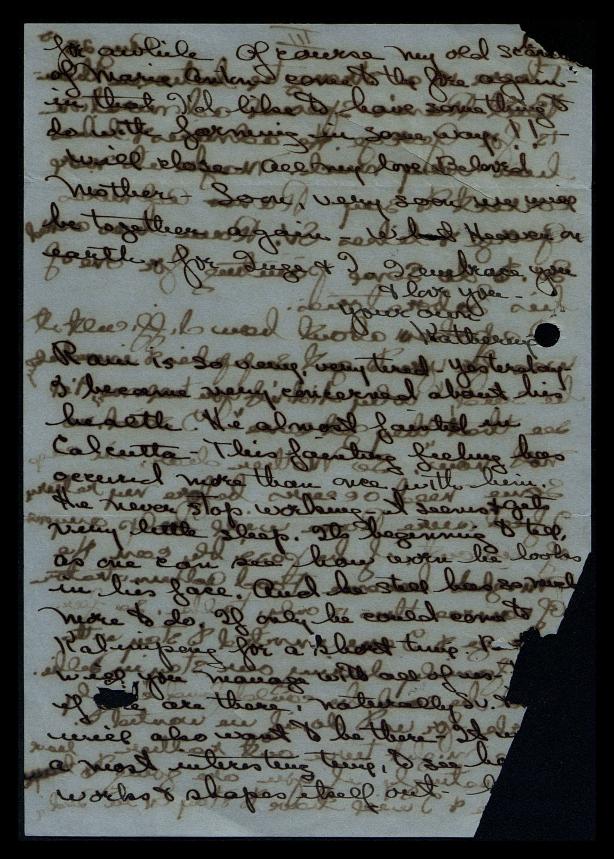 for awhile Of course my old
of Maria comes to the fore again -
in that I'd like to have something to
do with farming in some way !!
will close - all my love Beloved
Mother - Soon, very soon we will
be together again - What Heaven on
earth for Inge & I. I embrace you
I love you -
your own
Katherine
Ram is so very, very tired - yesterday
I became very concerned about his
health He almost fainted in
Calcutta - This fainting feeling has
occured more than once with him.
He never stop working - it seems & gets
very little sleep. Its beginning to tell,
as one can see how worn he looks
in his face. And he still has so much
more to do. If only he could come to
Kalimpong for a short time
will you manage with all of us -
if we are there, naturally
will also want to be there - It
a most interesting time, to see
works & shapes itself out -